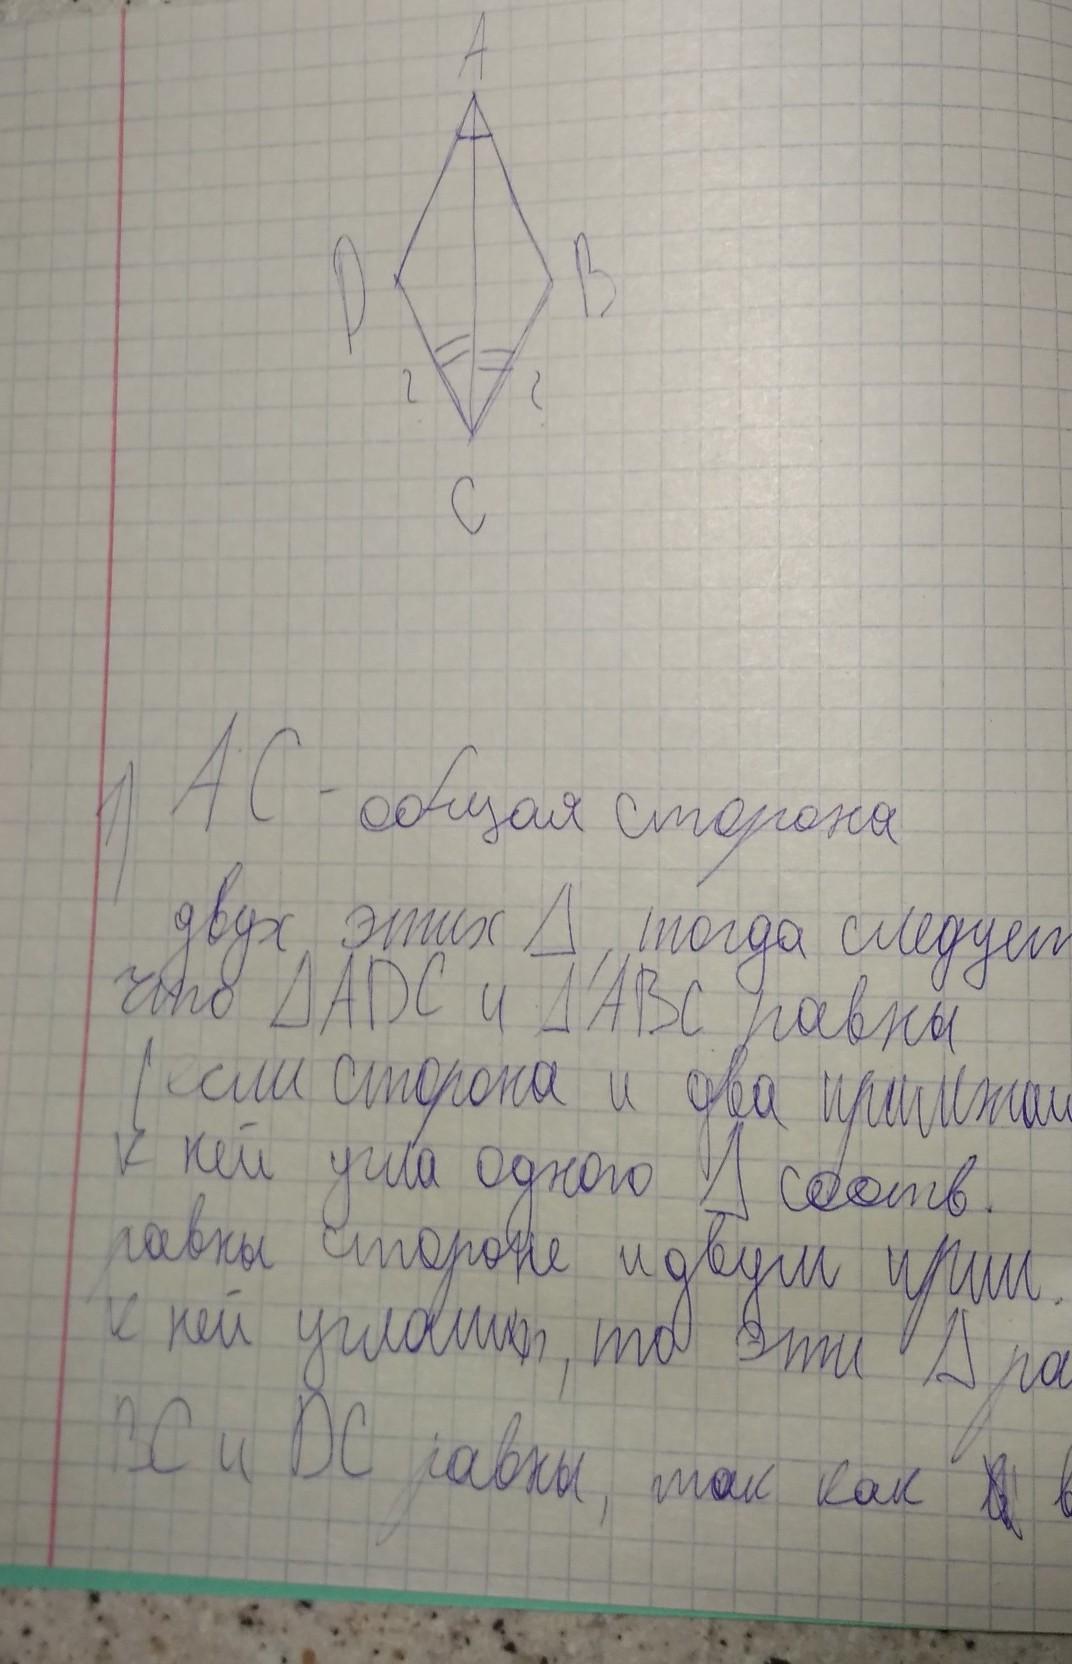 A
D
B
2
2
C
1) AC - общая сторона
двух этих Δ, тогда следует
что ΔADC и ΔABC равны
(если сторона и два прилежащ
к ней угла одного Δ соотв.
равны стороне и двум прил.
к ней углам, то эти Δ ра
BC и DC равны, так как в